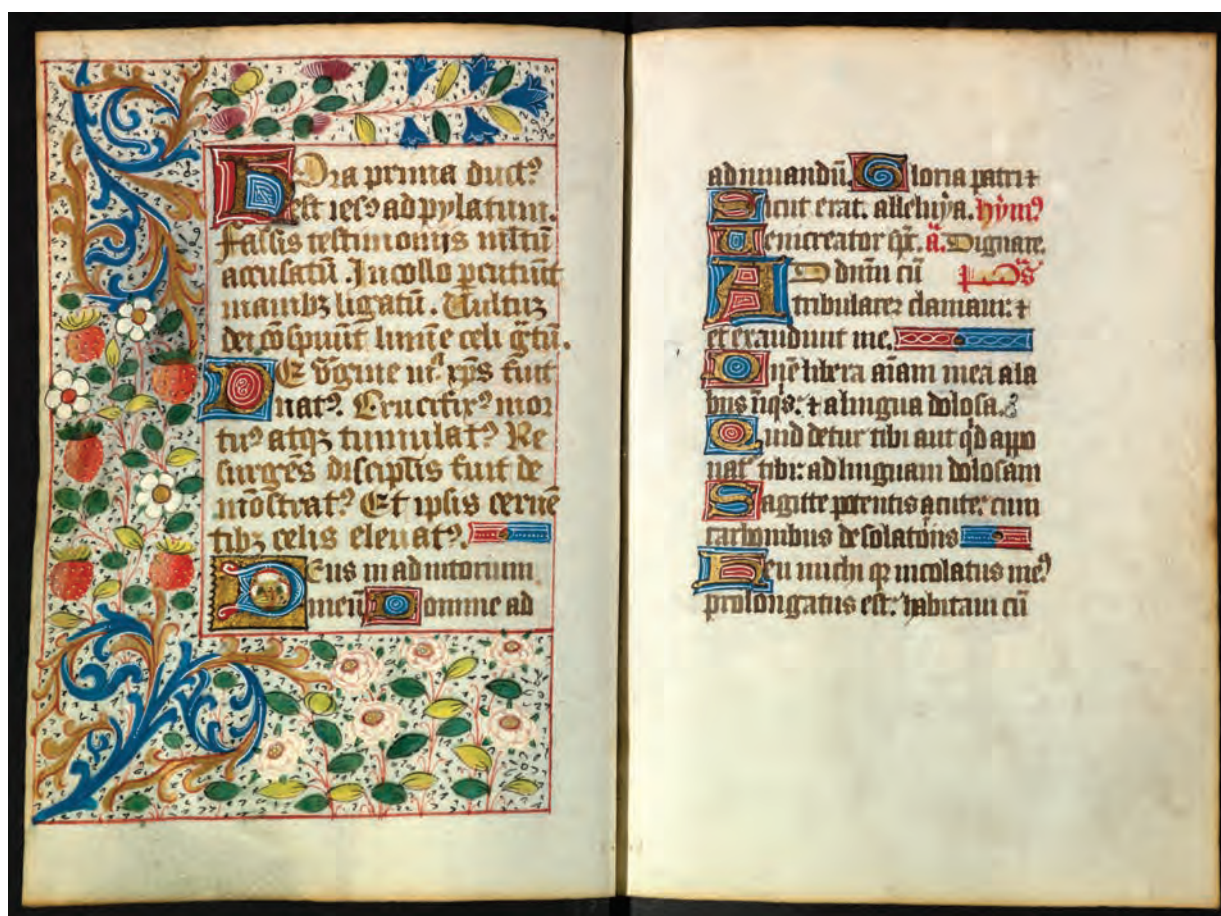 Hora prima duct⁹
est ies⁹ ad pylatum.
Falsis testimonijs mltū
accusatū. In collo ꝑcutiūt
manibꝫ ligatū. Uultuꝫ
dei cōspuūt lumīe celi g̃tū.
DE v̄gine mr̄ xp̄s fuit
nat⁹. Crucifix⁹ mor
tu⁹ atqꝫ tumulat⁹ Re
surgēs disciplis fuit de
mōstrat⁹ Et ipsis cernē
tibꝫ celis eleuat⁹.
DEus in adiutorium
meū Domine ad
adiuuandū. Gloria patri ⁊
Sicut erat. alleluya. hym⁹
Ueni creator sp̄c. a. Dignare.
AD dnm̄ cū p̄s
tribularer clamaui: ⁊
et exaudiuit me.
Dn̄e libera aīam meā a la
biis īiqs: ⁊ a lingua dolosa.
Quid detur tibi aut qd appo
nat tibi: ad linguam dolosam
Sagitte potentis acute: cum
carbonibus desolatōiis
Heu michi qꝛ incolatus me⁹
prolongatus est: habitaui cū